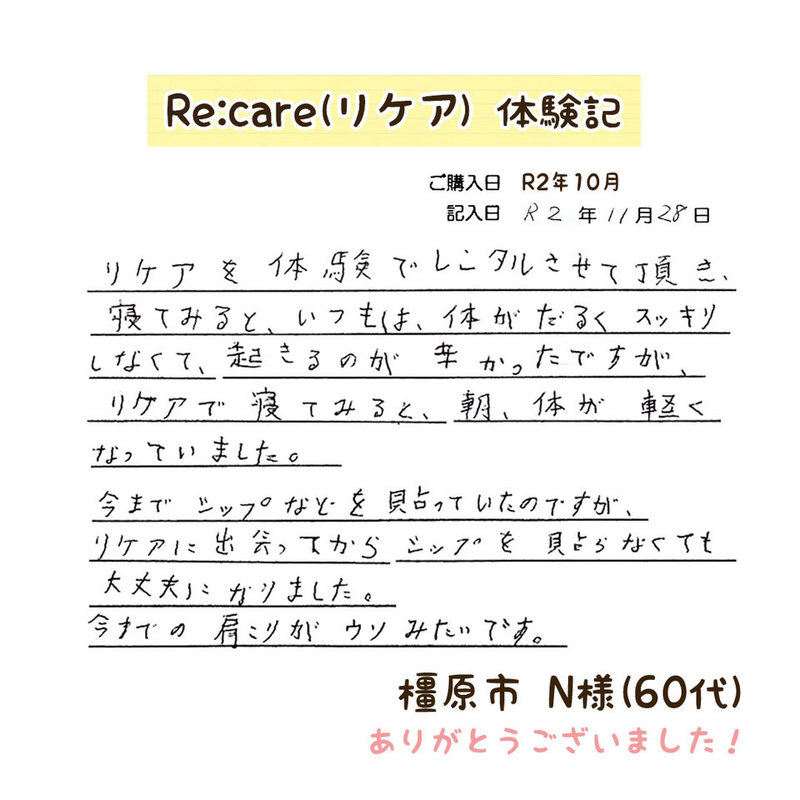 Re:care(リケア) 体験記
ご購入日 R2年10月
記入日 R2年11月28日
リケアを体験でレンタルさせて頂き、
寝てみると、いつもは、体がだるくスッキリ
しなくて、起きるのが辛かったですが、
リケアで寝てみると、朝、体が軽く
なっていました。
今までシップなどを貼っていたのですが、
リケアに出会ってからシップを貼らなくても
大丈夫になりました。
今までの肩こりがウソみたいです。
橿原市 N様(60代)
ありがとうございました!